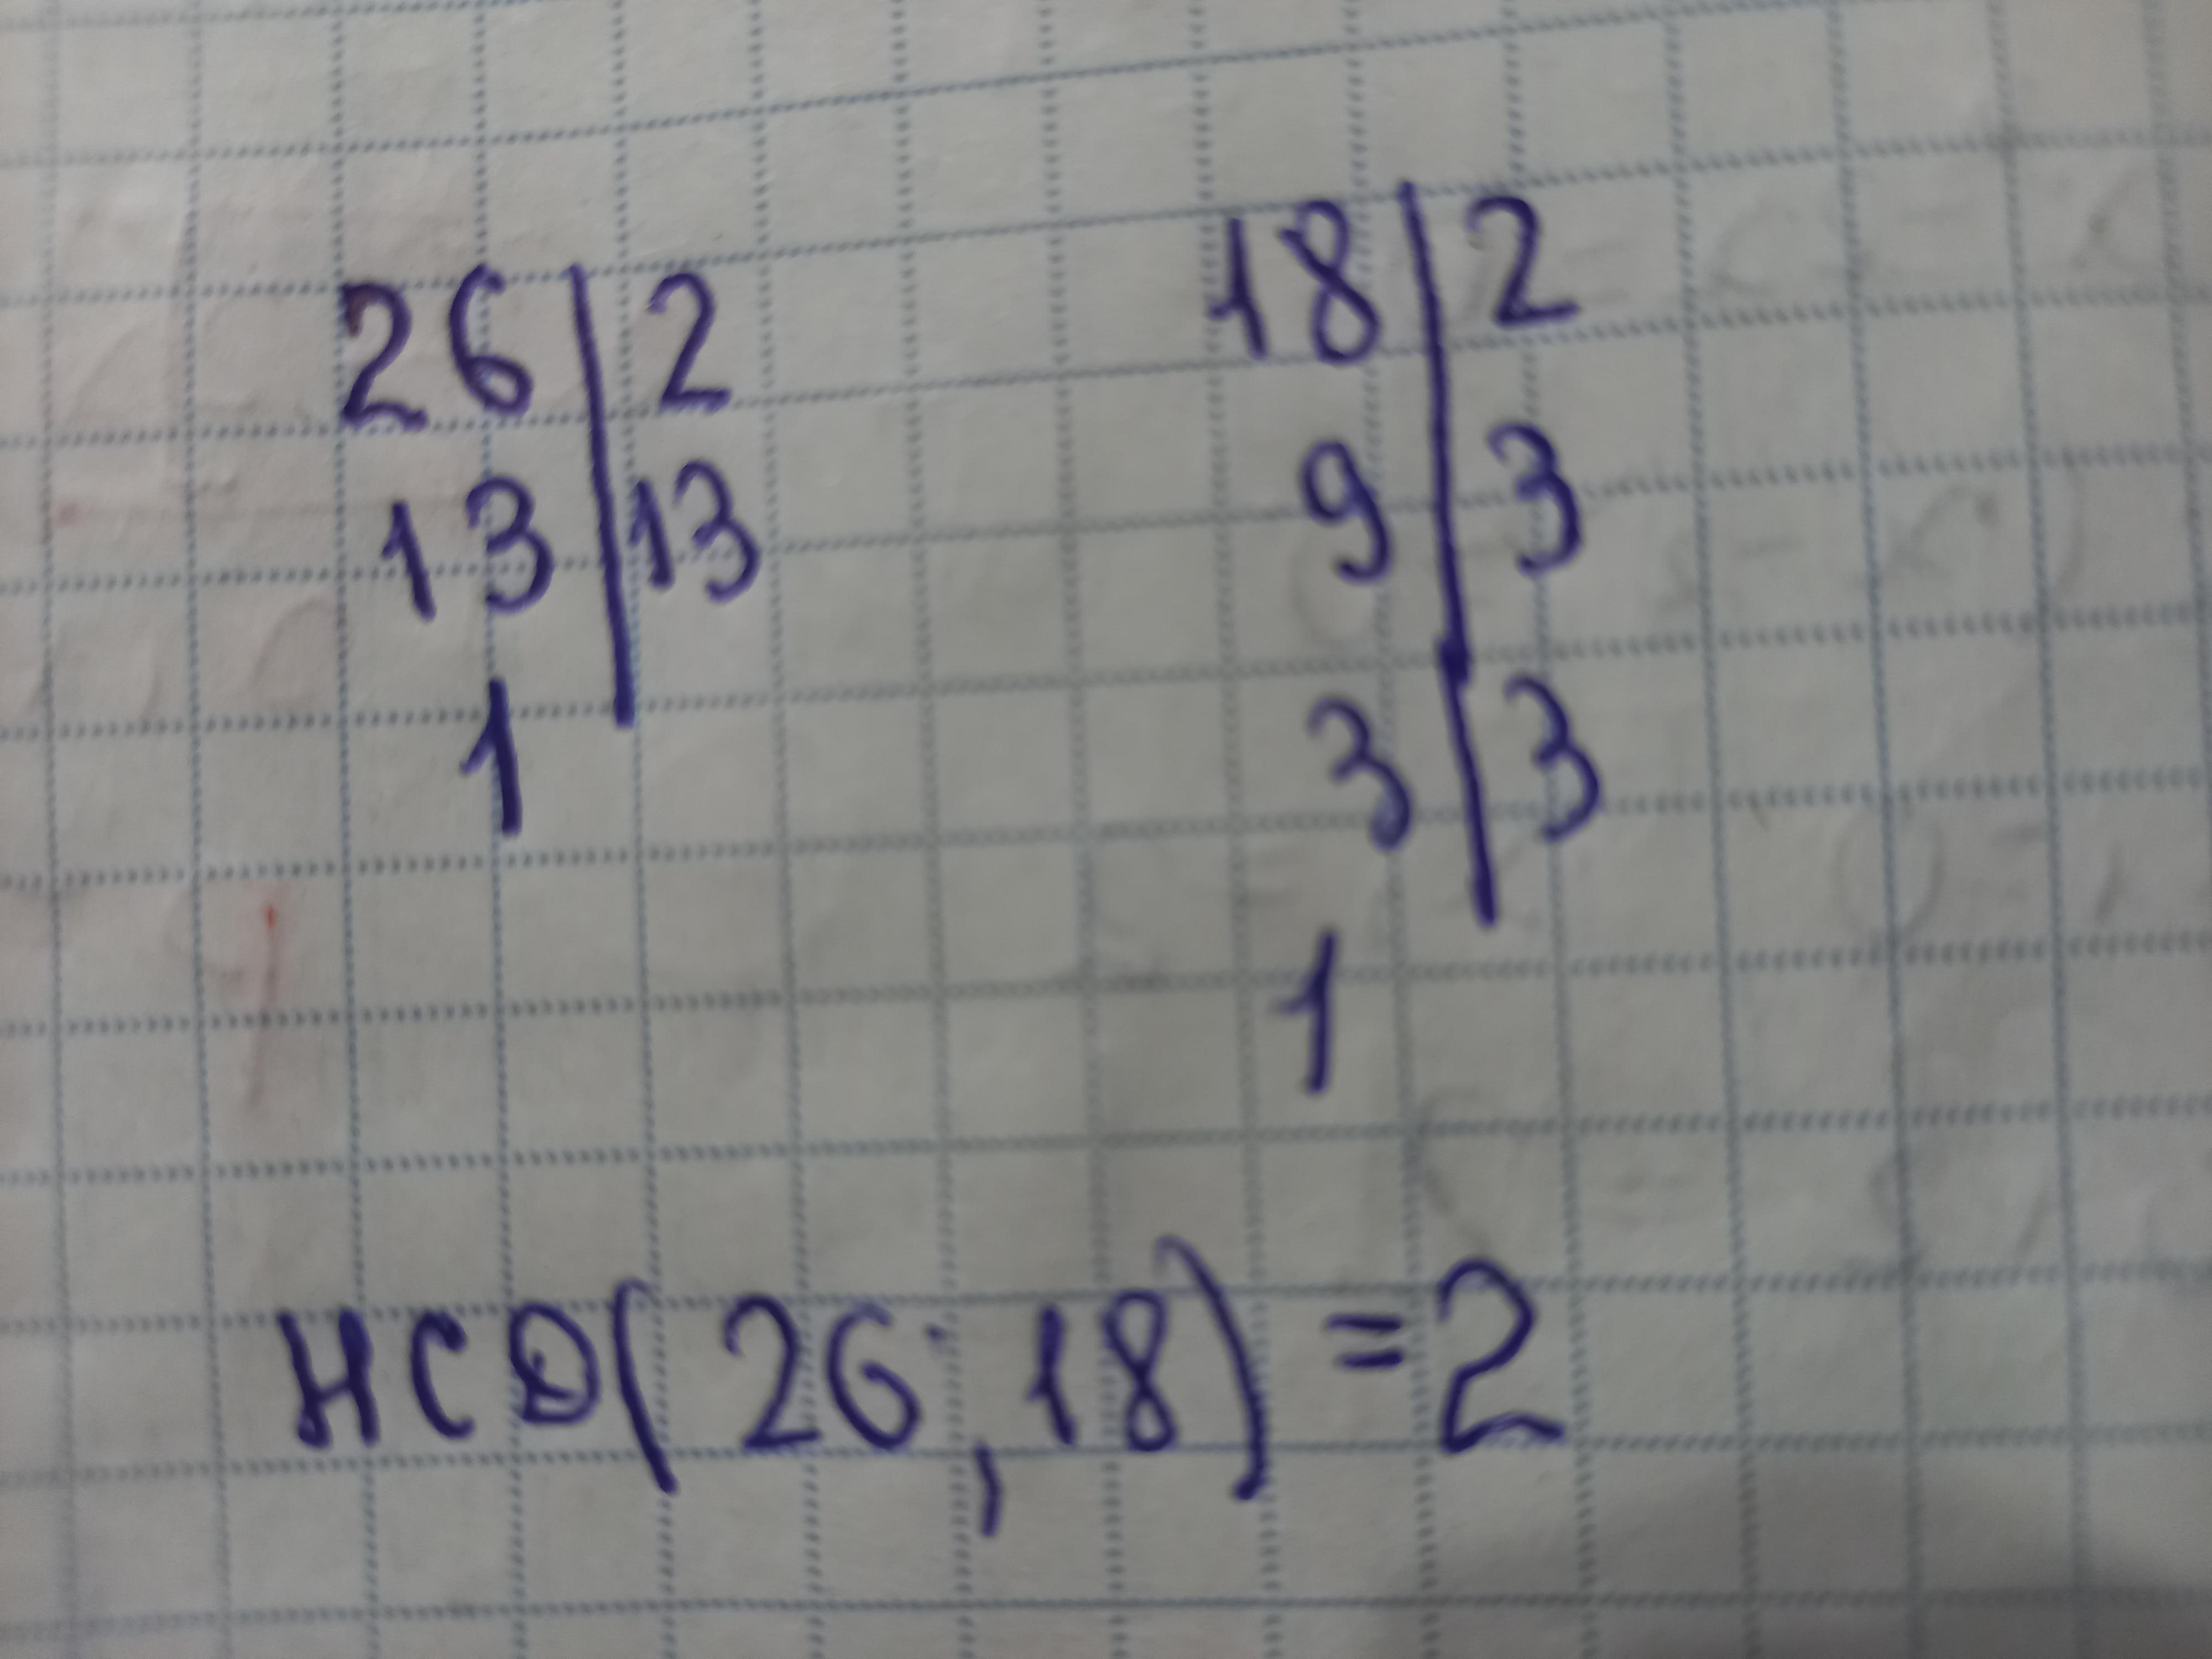 26 | 2
13 | 13
1
18 | 2
9 | 3
3 | 3
1
НСД(26,18)=2